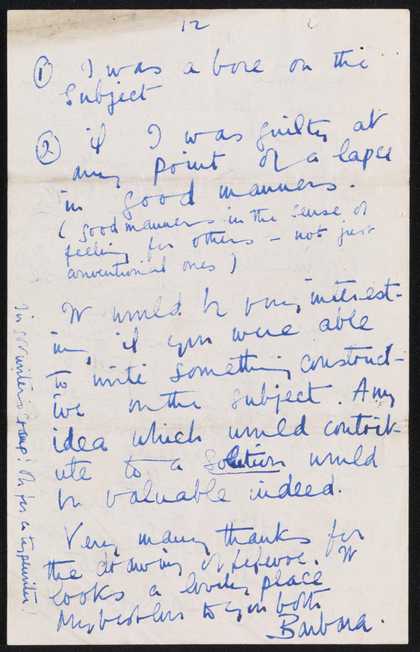 12
① I was a bore on the
Subject
② if I was guilty at
any point of a lapse
in good manners.
(good manners in the sense of
feeling for others – not just
conventional ones)
It would be very interest-
ing if you were able
to write something construct-
ive on the subject. Any
idea which would contrib
ute to a solution would
be valuable indeed.
Very many thanks for
the drawing of It
looks a lovely place
My best love to you both
Barbara.
I've got writer's cramp! Oh for a typewriter!